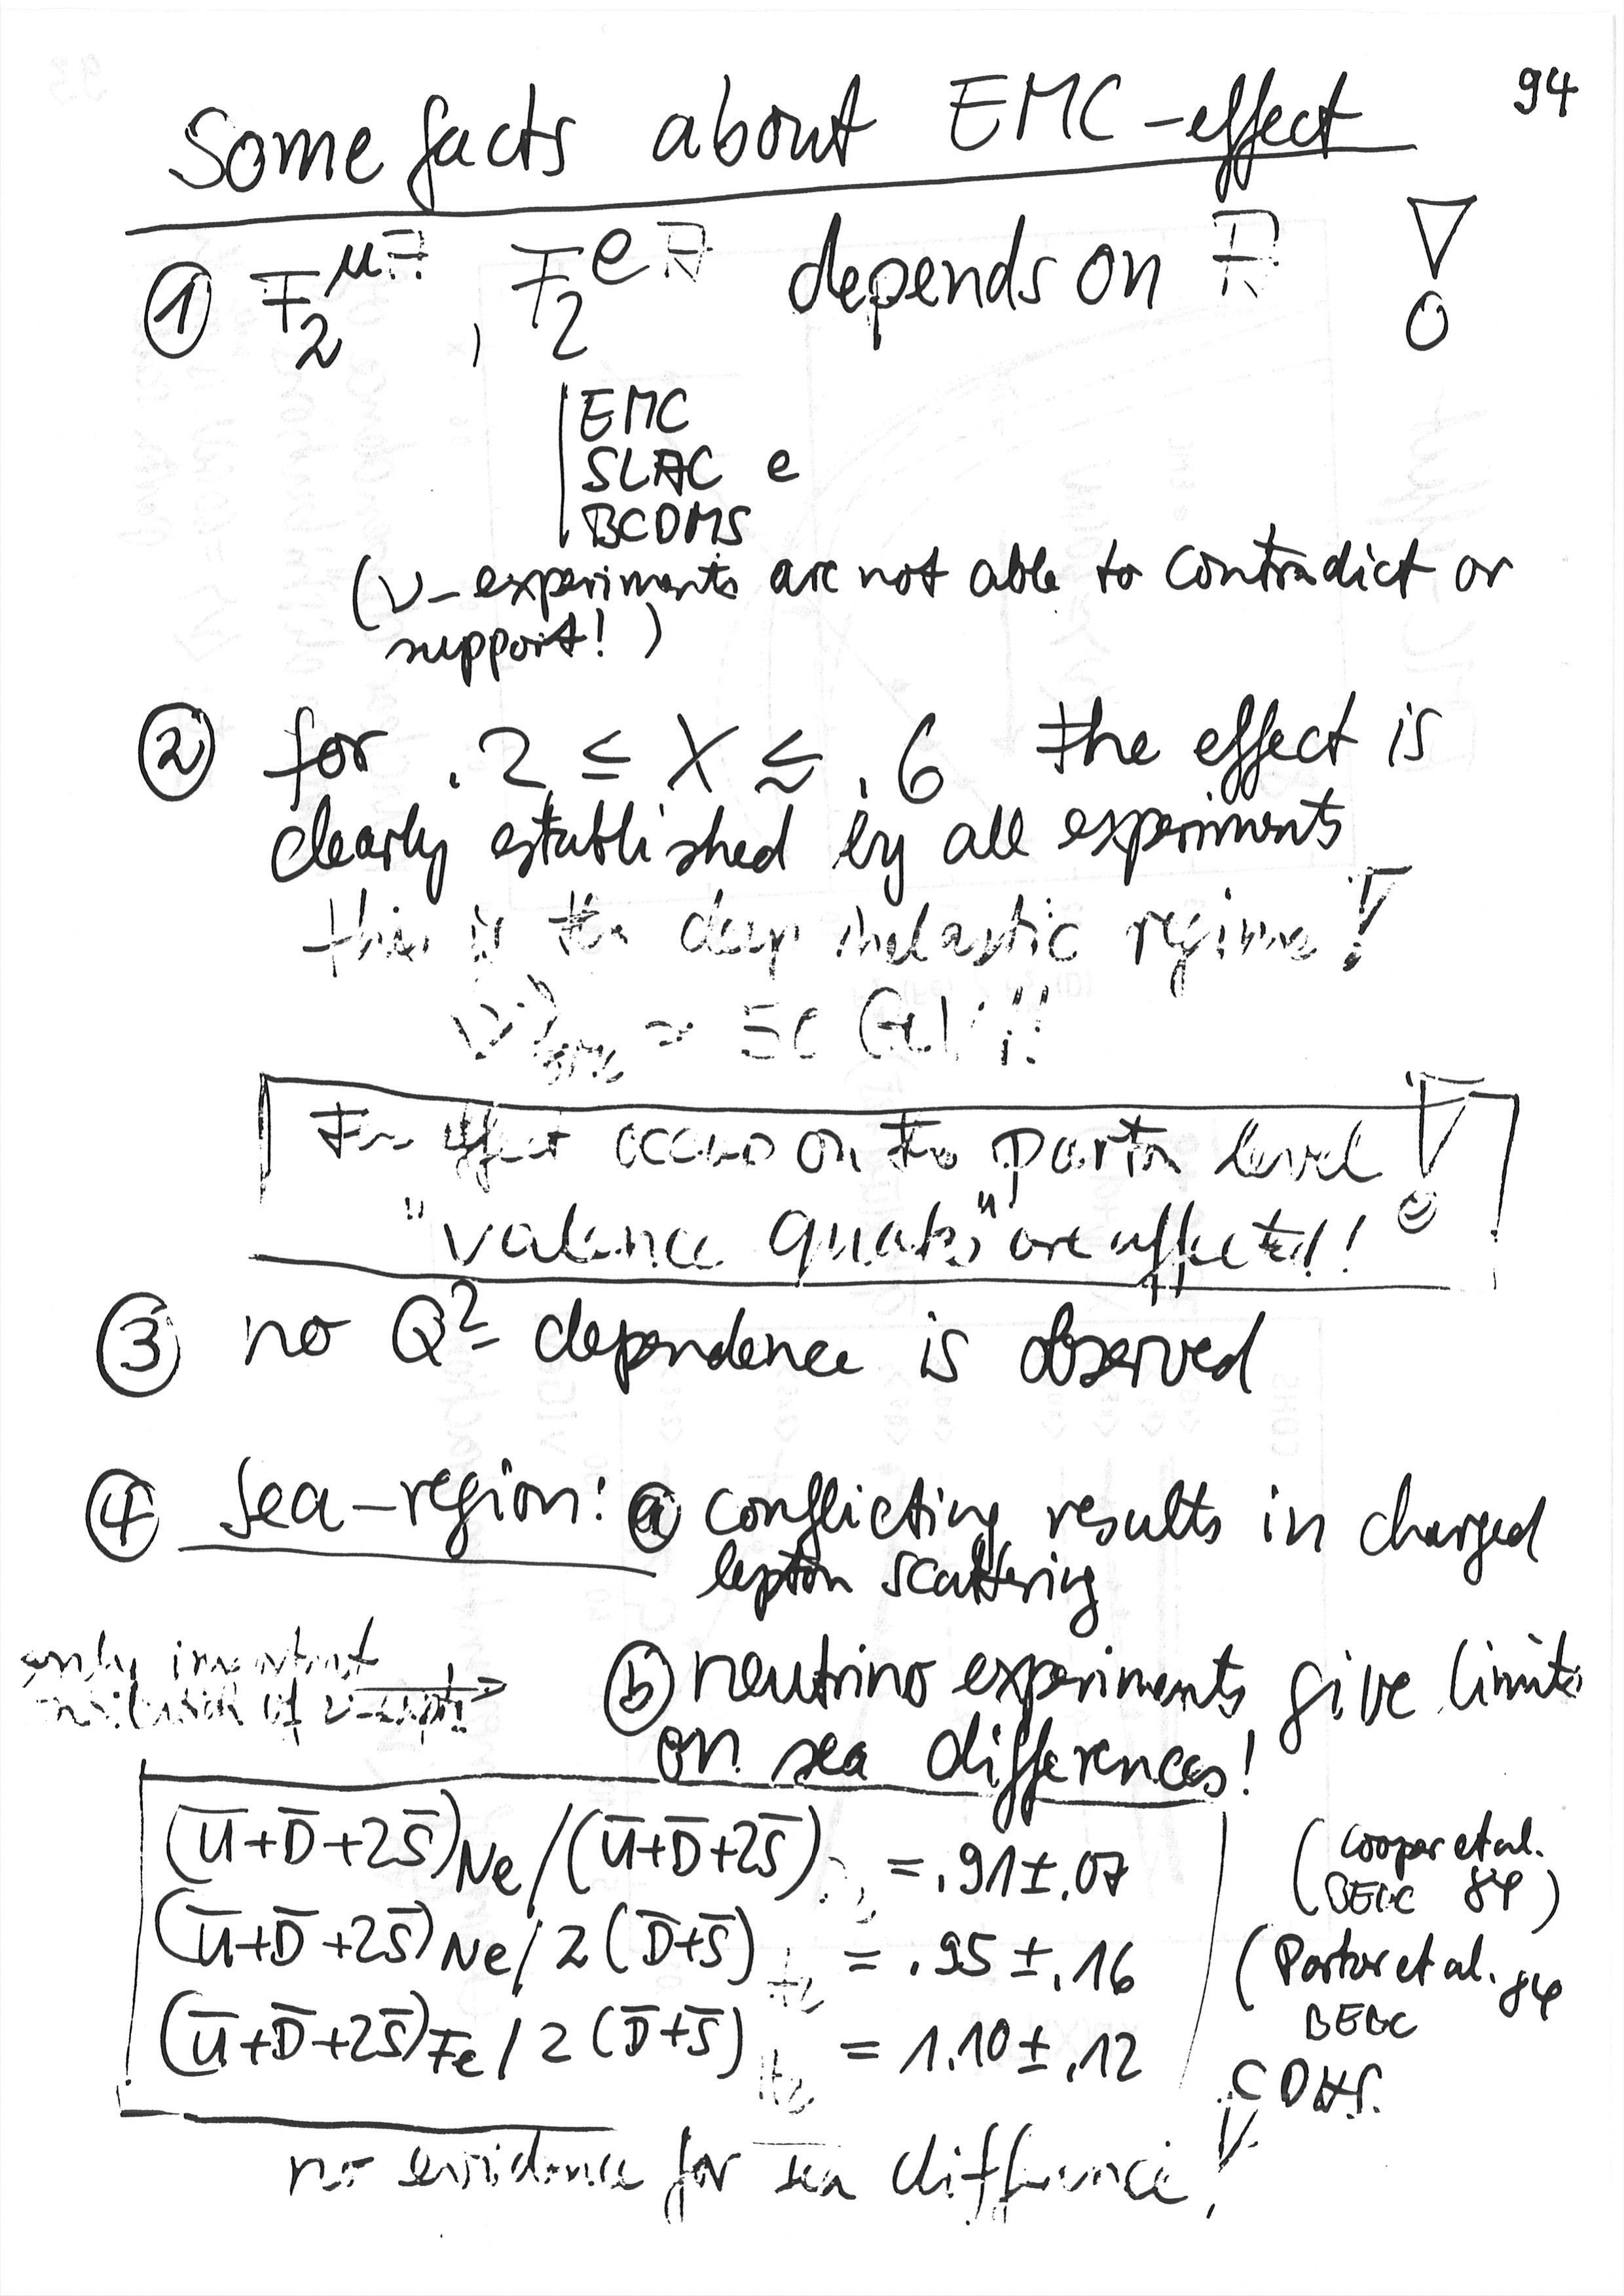 94
Some facts about EMC-effect
① F₂^μA , F₂^eA depends on A !
EMC
SLAC e
BCDMS
(ν-experiments are not able to contradict or
support!)
② for .2 ≤ x ≲ .6 the effect is
clearly established by all experiments
this is the deep inelastic regime!
The effect occurs on the parton level !
"valence quarks" are affected!!
③ no Q²-dependence is observed
④ Sea-region: ⓐ conflicting results in charged
lepton scattering
only important
of ν-expts →
ⓑ neutrino experiments give limits
on sea differences!
(Ū+D̄+2S̄)Ne/(Ū+D̄+2S̄) = .91±.07 (Cooper et al.
BEBC 84)
(Ū+D̄+2S̄)Ne/2(D̄+S̄)H₂ = .95±.16 (Parker et al. 84
BEBC
(Ū+D̄+2S̄)Fe/2(D̄+S̄)H₂ = 1.10±.12 CDHS.
no evidence for sea difference!